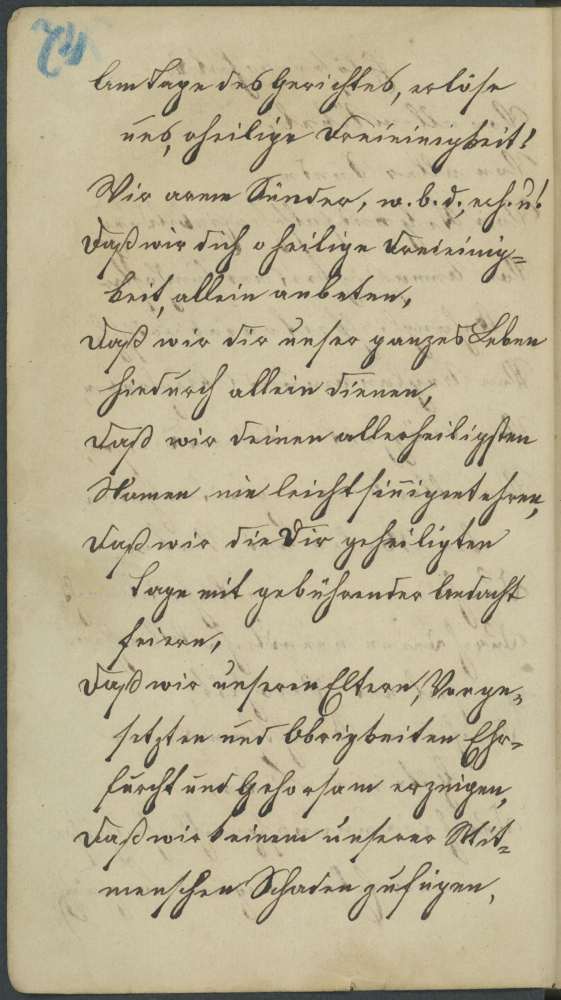 74
Am Tage des Gerichtes, erlöse
uns, o heilige Dreieinigkeit!
Wir arme Sünder, w. b. d., erh. u!
Daß wir dich o heilige Dreieinig=
keit, allein anbeten,
Daß wir dir unser ganzes Leben
hindurch allein dienen,
Daß wir deinen allerheiligsten
Namen nie leichtsinnig entehren,
Daß wir die Dir geheiligten
Tage mit gebührender Andacht
feiern,
Daß wir unseren Eltern, Vorge=
setzten und Obrigkeiten Ehr=
furcht und Gehorsam erzeigen,
Daß wir keinem unserer Mit=
menschen Schaden zufügen,